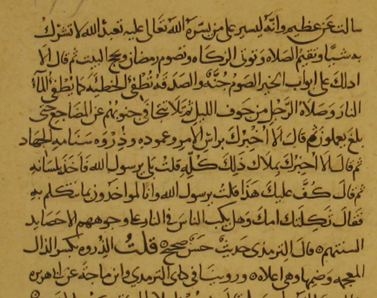 سالت عن عظيم وانه ليسير على من يسره الله تعالى عليه تعبد الله لا تشرك
به شيا وتقيم الصلاة وتوتى الزكاه وتصوم رمضان وتحج البيت ثم قال الا
ادلك على ابواب الخير الصوم جنة والصدقه تطفى الخطيئه كما يطفى الما
النار وصلاة الرجل من جوف الليل ثم تلا تتجافى جنوبهم عن المضاجع حتى
بلغ يعملون ثم قال الا اخبرك براس الامر وعموده وذروه سنامه الجهاد
ثم قال الا اخبرك بملاك ذلك كله قلت بلى يرسول الله فاخذ بلسانه
ثم قال كف عليك هذا قلت يرسول الله وانا لمواخذون بما نتكلم به
فقال ثكلتك امك وهل يكب الناس فى النار على وجوههم الا حصايد
السنتهم قال الترمذى حديث حسن صحيح قلت الذروه بكسر الذال
المعجمه وضمها وهى اعلاه وروينا فى كتابى الترمذى وابن ماجه عن ابى هريره